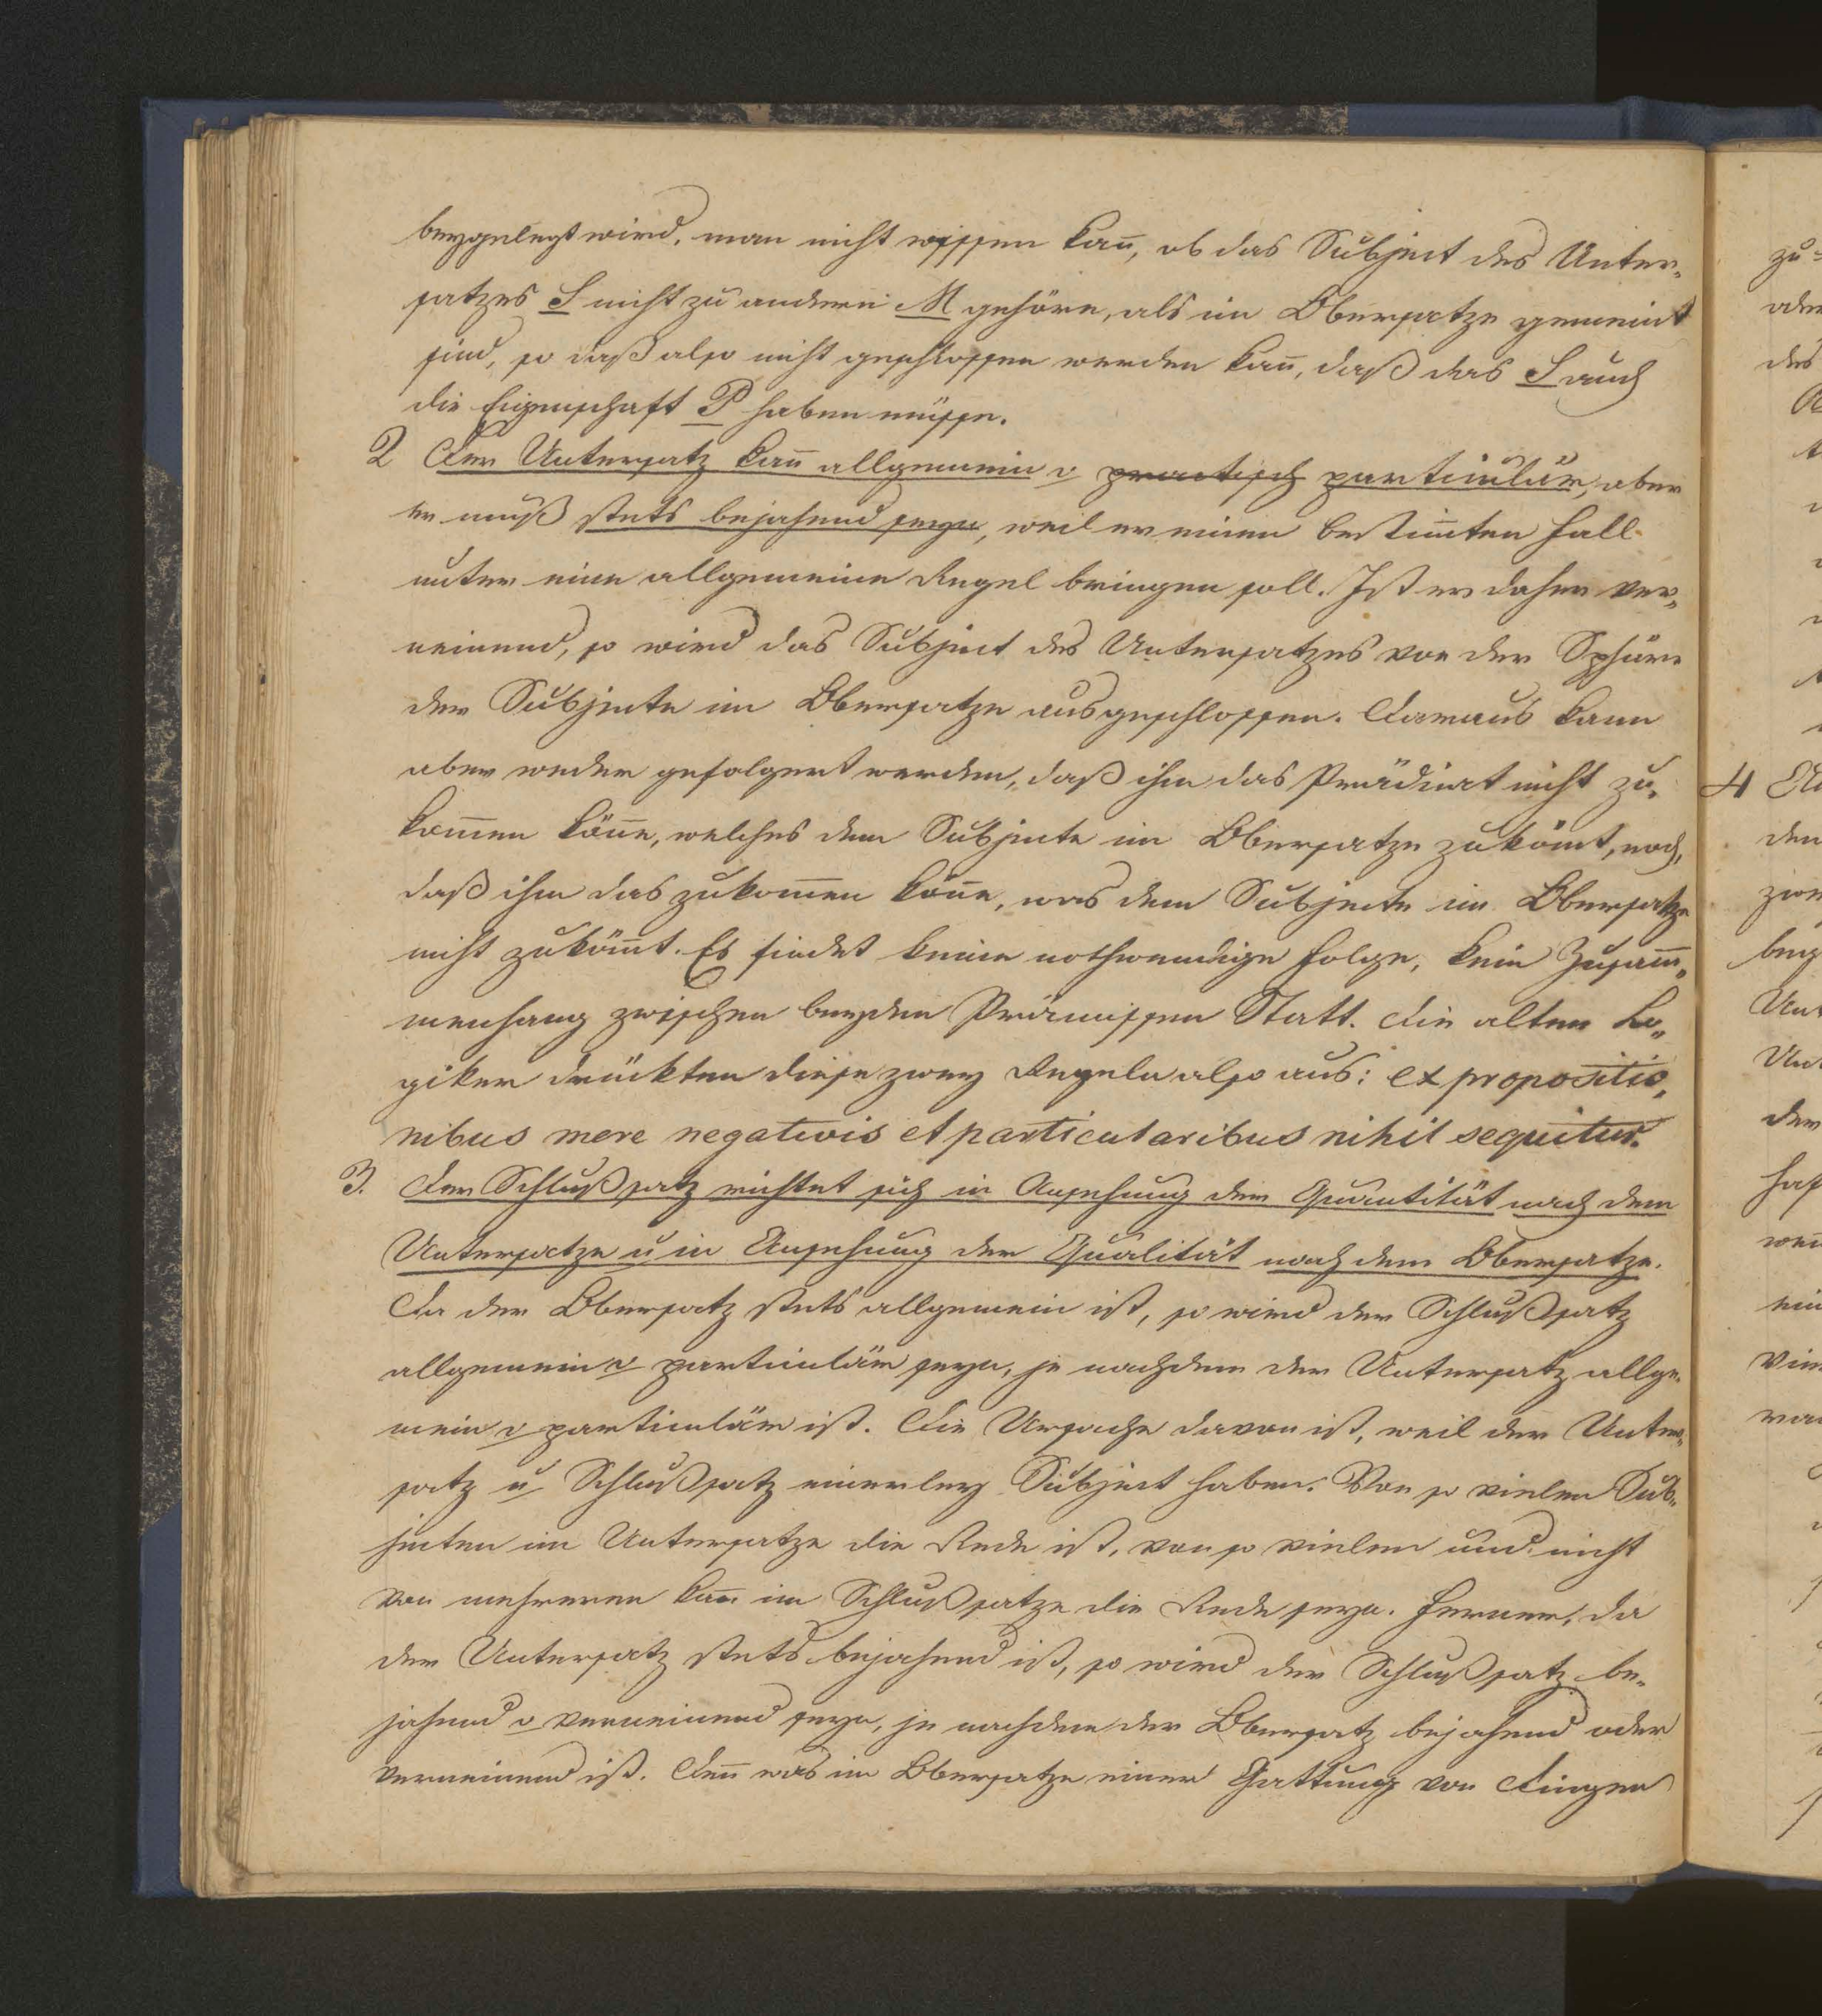 beygelegt wird, man nicht wissen kan̄, ob das Subject des Unter„
satzes S nicht zu andern M gehöre, als im Obersatze gemeint
sind, so daß also nicht geschlossen werden kan̄, daß das S auch
die Eigenschaft P haben müsse.
2 Der Untersatz kan̄ allgemein o practisch particulär, aber
er muß stets bejahend seyn, weil er einen bestim̄ten Fall
unter eine allgemeine Regel bringen soll. Ist er daher ver„
neinend, so wird das Subject des Untersatzes von der Sphäre
der Subjecte im Obersatze ausgeschlossen. Daraus kann
aber weder gefolgert werden, daß ihm das Prädicat nicht zu„
kom̄en kön̄e, welches dem Subjecte im Obersatze zuköm̄t, noch,
daß ihm das zukom̄en kön̄e, was dem Subjecte im Obersatze
nicht zuköm̄t. Es findet keine nothwendige Folge, kein Zusam̄„
menhang zwischen beyden Prämissen Statt. Die alten Lo„
giker drückten diese zwey Regeln also aus: ex propositio„
nibus mere negativis et particularibus nihil sequitur.
3. Der Schlußsatz richtet sich in Ansehung der Quantität nach dem
Untersatze u in Ansehung der Qualität nach dem Obersatze.
Da der Obersatz stets allgemein ist, so wird der Schlußsatz
allgemein o particulär seyn, je nachdem der Untersatz allge„
mein o particulär ist. Die Ursache davon ist, weil der Unter„
satz u Schlußsatz einerley Subject haben. Von so vielen Sub„
jecten im Untersatze die Rede ist, von so vielen und nicht
von mehreren kan̄ im Schlußsatze die Rede seyn. Ferner, da
der Untersatz stets bejahend ist, so wird der Schlußsatz be„
jahend o verneinend seyn, je nachdem der Obersatz bejahend oder
verneinend ist. Den̄ was im Obersatze einer Gattung von Dingen